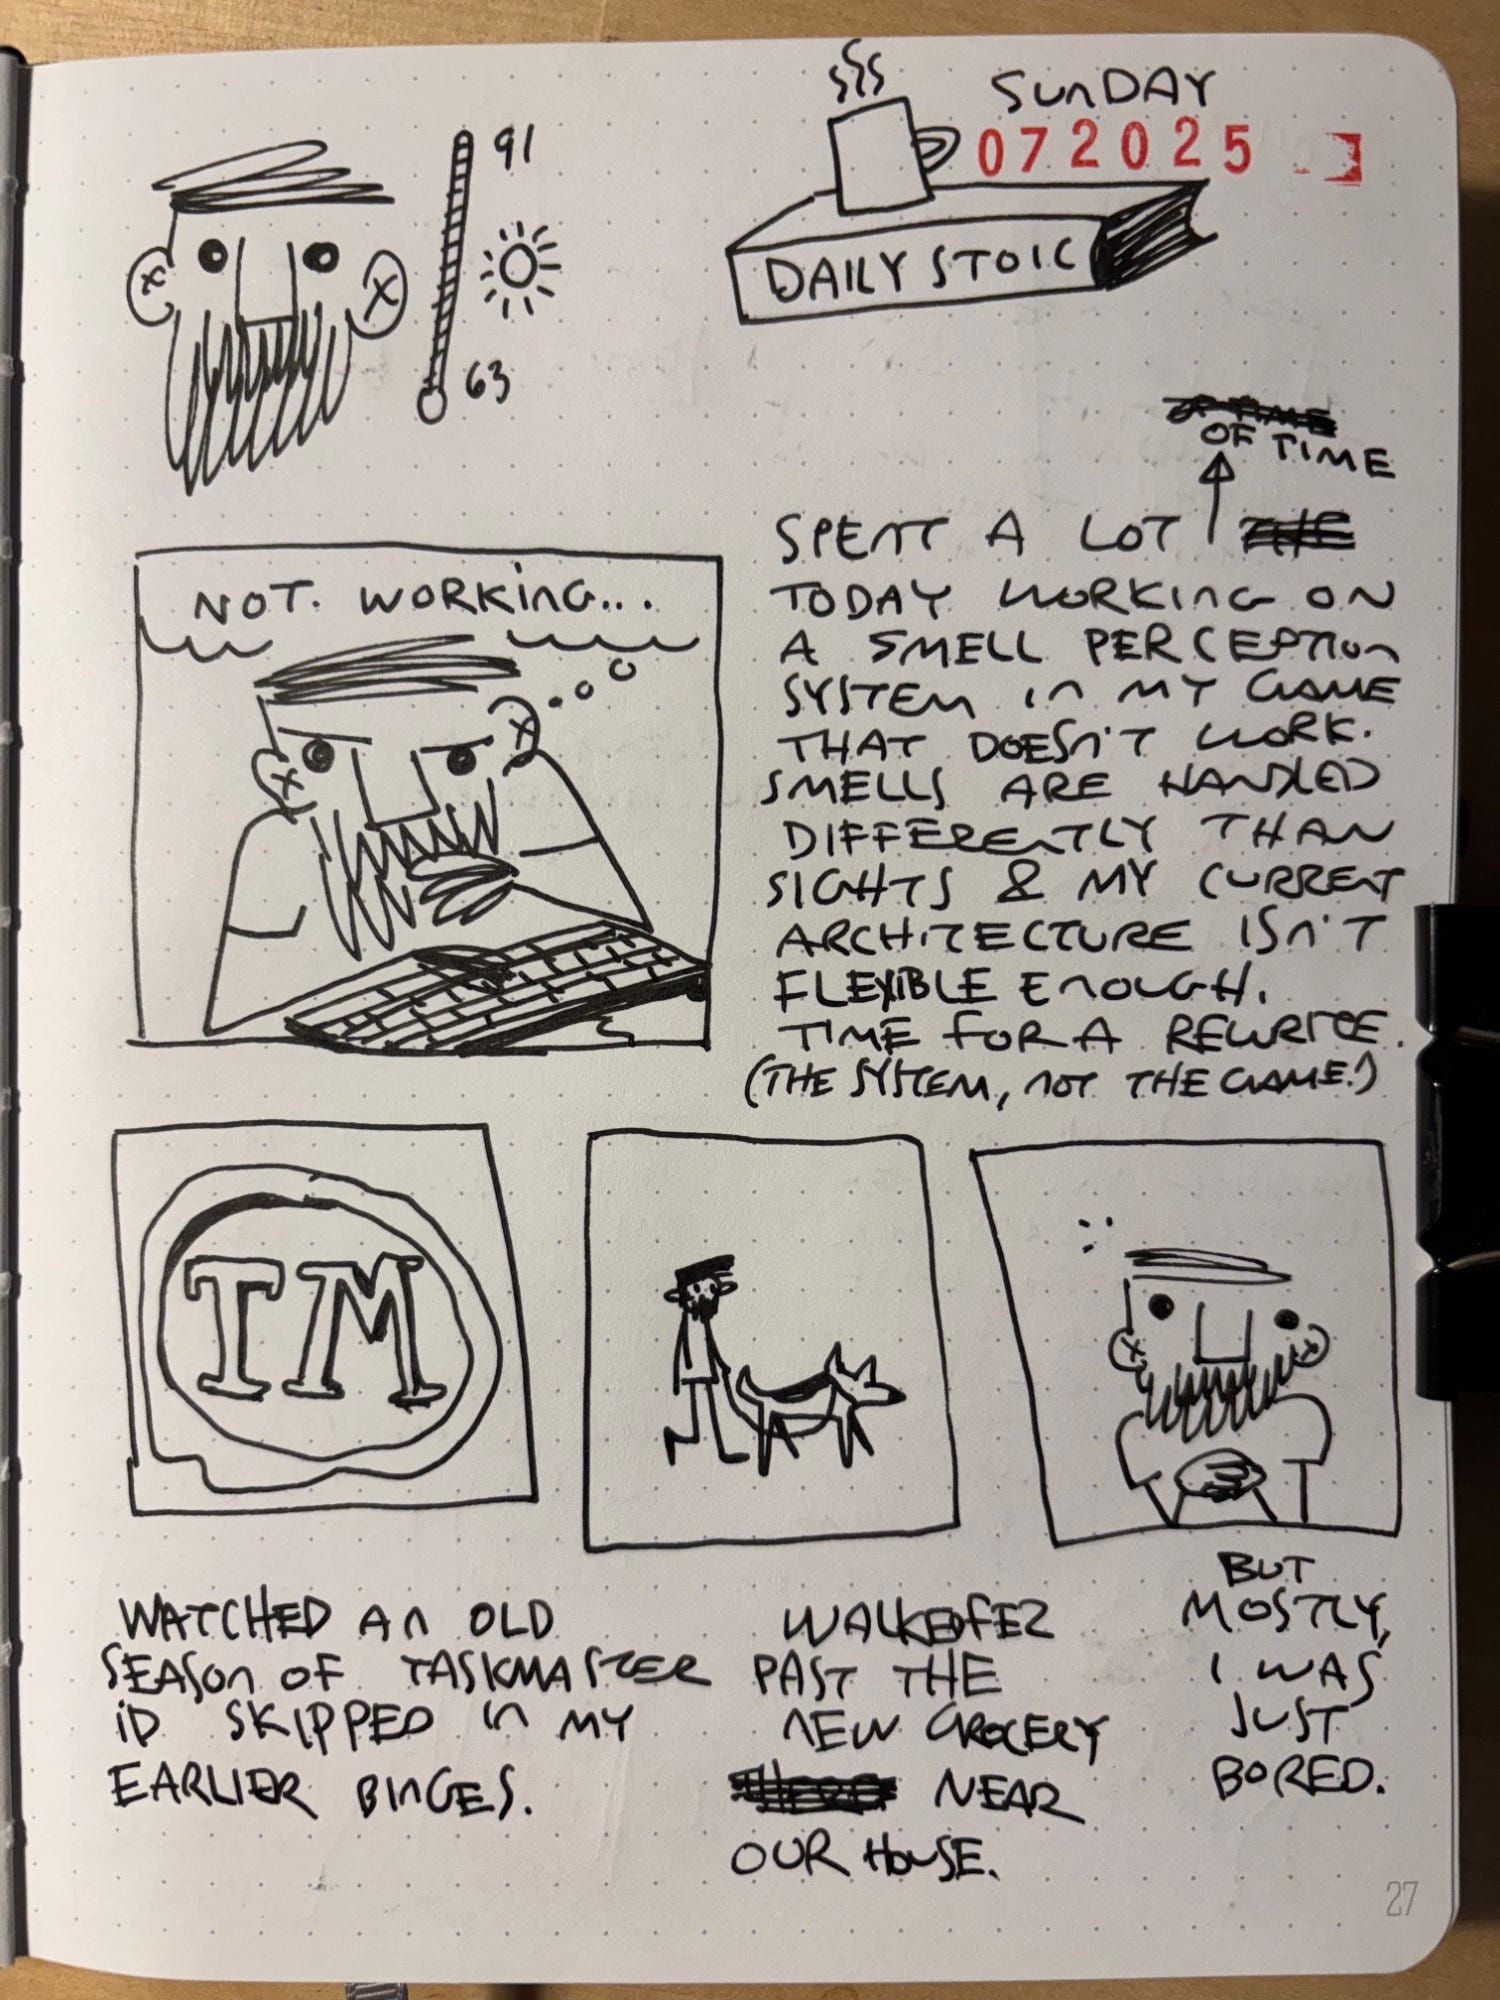 SUNDAY
072025
91
63
DAILY STOIC
OF TIME
SPENT A LOT
TODAY WORKING ON
A SMELL PERCEPTION
SYSTEM IN MY GAME
THAT DOESN'T WORK.
SMELLS ARE HANDLED
DIFFERENTLY THAN
SIGHTS & MY CURRENT
ARCHITECTURE ISN'T
FLEXIBLE ENOUGH.
TIME FOR A REWRITE.
(THE SYSTEM, NOT THE GAME!)
NOT. WORKING...
TM
WATCHED AN OLD
SEASON OF TASKMASTER
ID SKIPPED IN MY
EARLIER BINGES.
WALKED FEZ
PAST THE
NEW GROCERY
NEAR
OUR HOUSE.
BUT
MOSTLY,
I WAS
JUST
BORED.
27